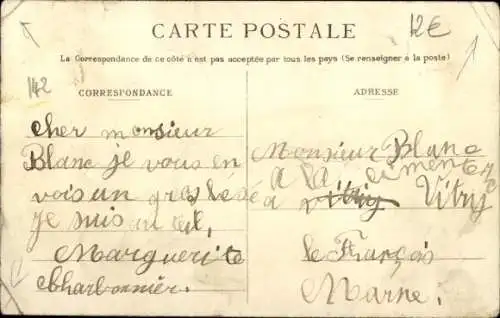 CARTE POSTALE
12€
La Correspondance de ce côté n'est pas acceptée par tous les pays (Se renseigner à la poste)
142
CORRESPONDANCE
cher monsieur
Blanc je vous en
vois un gros
je suis au
Marguerite
Charbonnier.
ADRESSE
Monsieur Blanc
a la ciment
a vitry Vitry
le François
Marne.